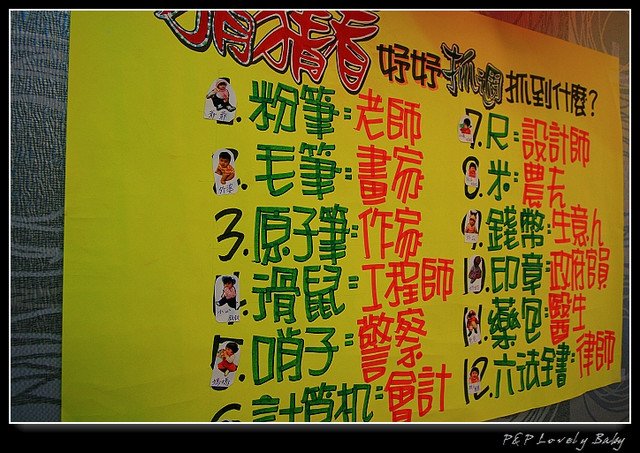 猜猜看 妤妤抓週抓到什麼?
1.粉筆:老師
2.毛筆:畫家
3.原子筆:作家
4.滑鼠:工程師
5.哨子:警察
6.計算机:會計
7.尺:設計師
8.米:農夫
9.錢幣:生意人
10.印章:政府官員
11.藥包:醫生
12.六法全書:律師
P&P Lovely Baby